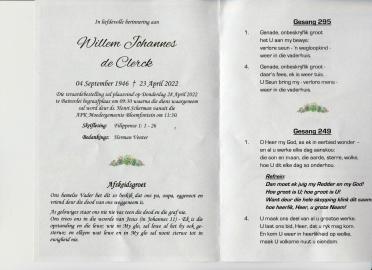 In liefdevolle herinnering aan
Willem Johannes
de Clerck
04 September 1946 † 23 April 2022
Die teraardebestelling sal plaasvind op Donderdag 28 April 2022
te Bainsvlei begraafplaas om 09:30 waarna die diens waargeneem
sal word deur ds. Henri Scherman vanuit die
APK Moedergemeente Bloemfontein om 11:30
Skriflesing: Filippense 1: 1 - 26
Bedankings: Herman Venter
Afskeidsgroet
Ons hemelse Vader het dit so beskik dat ons pa, oupa, oggroot en
vriend deur die dood van ons weggeneem is.
As gelowiges staan ons nie vas teen die dood en die graf nie.
Ons troos ons in die woorde van Jesus (in Johannes 11) - Ek is die
opstanding en die lewe; wie in My glo, sal lewe al het hy ook ge-
sterwe; en elkeen wat lewe en in My glo sal nooit sterwe tot in
ewigheid nie.
Gesang 295
1. Genade, onbeskryflik groot
het U aan my bewys:
verlore seun - 'n wegloopkind -
weer in die vaderhuis.
4. Genade, onbeskryflik groot -
daar's fees, ek is weer tuis.
U Seun bring my - verlore mens -
weer in die vaderhuis.
Gesang 249
1. O Heer my God, as ek in eerbied wonder -
en al u werke elke dag aanskou:
die son en maan, die aarde, sterre, wolke,
hoe U dit elke dag so onderhou.
Refrein:
Dan moet ek juig my Redder en my God!
Hoe groot is U; hoe groot is U!
Want deur die hele skepping klink dit saam:
hoe heerlik, Heer, u grote Naam!
4. U maak ons deel van al u grootse werke.
U laat ons bid, Heer, dat u ryk mag kom.
En kom U weer in heerlikheid op wolke,
maak U volkome nuut u eiendom.